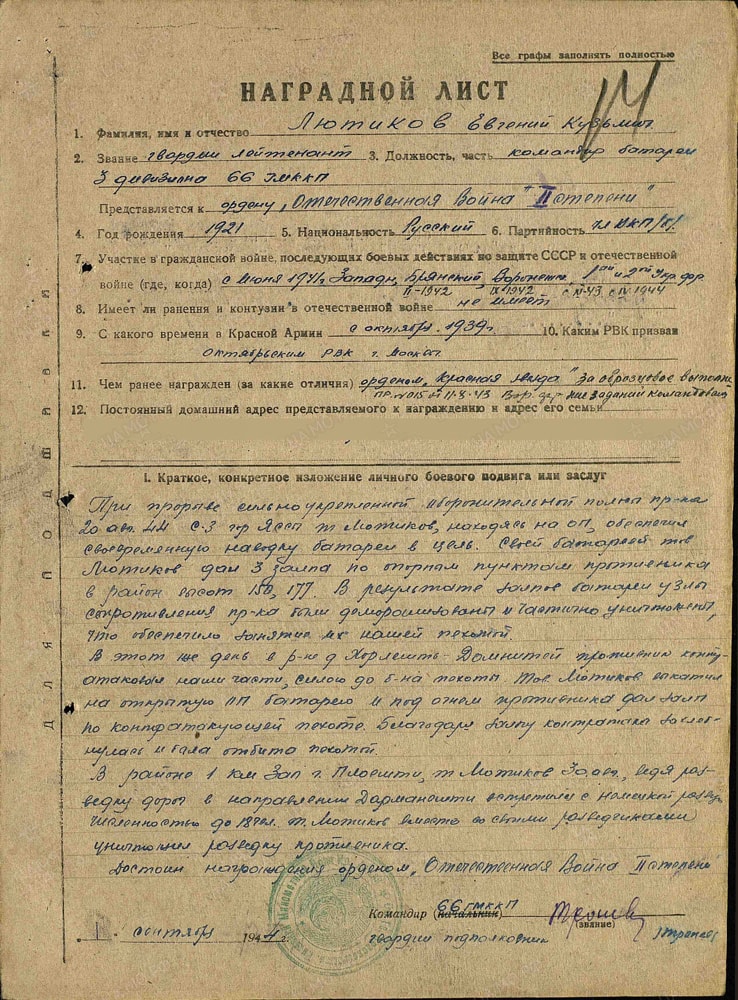 Все графы заполнять полностью
НАГРАДНОЙ ЛИСТ
1. Фамилия, имя и отчество Лютиков Евгений Кузьмич
2. Звание гвардии лейтенант 3. Должность, часть командир батареи
3 дивизиона 66 гмккп
Представляется к ордену „Отечественная Война II степени"
4. Год рождения 1921 5. Национальность Русский 6. Партийность чл ВКП/б/
7. Участие в гражданской войне, последующих боевых действиях по защите СССР и отечественной
войне (где, когда) с июня 1941г. Западн, Брянский, Воронежс, 1ой и 2ой Укр фр
II-1942 IX-1942 с XI-43 с IV 1944
8. Имеет ли ранения и контузии в отечественной войне не имеет
9. С какого времени в Красной Армии с октября 1939г. 10. Каким РВК призван
Октябрьским РВК г. Москвы
11. Чем ранее награжден (за какие отличия) орденом „Красная звезда" за образцовое выполне
пр. №015 от 11-8-43 Вор. фр. ние заданий командован
12. Постоянный домашний адрес представляемого к награждению и адрес его семьи
I. Краткое, конкретное изложение личного боевого подвига или заслуг
При прорыве сильно укрепленной оборонительной полосы пр-ка
20 авг. 44 с-з гор Яссы т Лютиков, находясь на ОП, обеспечил
своевременную наводку батареи в цель. Своей батареей тов
Лютиков дал 3 залпа по опорным пунктам противника
в район высот 150, 177. В результате залпов батареи узлы
сопротивления пр-ка были деморализованы и частично уничтожены,
что обеспечило занятие их нашей пехотой.
В этот же день в р-не д Хорлешть - Домнитей противник контр
атаковал наши части, силою до б-на пехоты. Тов Лютиков выкатил
на открытую ОП батарею и под огнем противника дал залп
по контратакующей пехоте. Благодаря залпу контратака захлеб-
нулась и была отбита пехотой.
В районе 1 км Зап г. Плоешти, т Лютиков 30 авг., ведя раз-
ведку дорог в направлении Дарманешти встретился с немецкой развед
численностью до 18 чел. т. Лютиков вместе со своими разведчиками
уничтожил разведку противника.
Достоин награждения орденом „Отечественная Война II степени"
Командир (начальник) 66 гмккп
(звание)
гвардии подполковник
1 сентября 1944 г.
Для подшивки